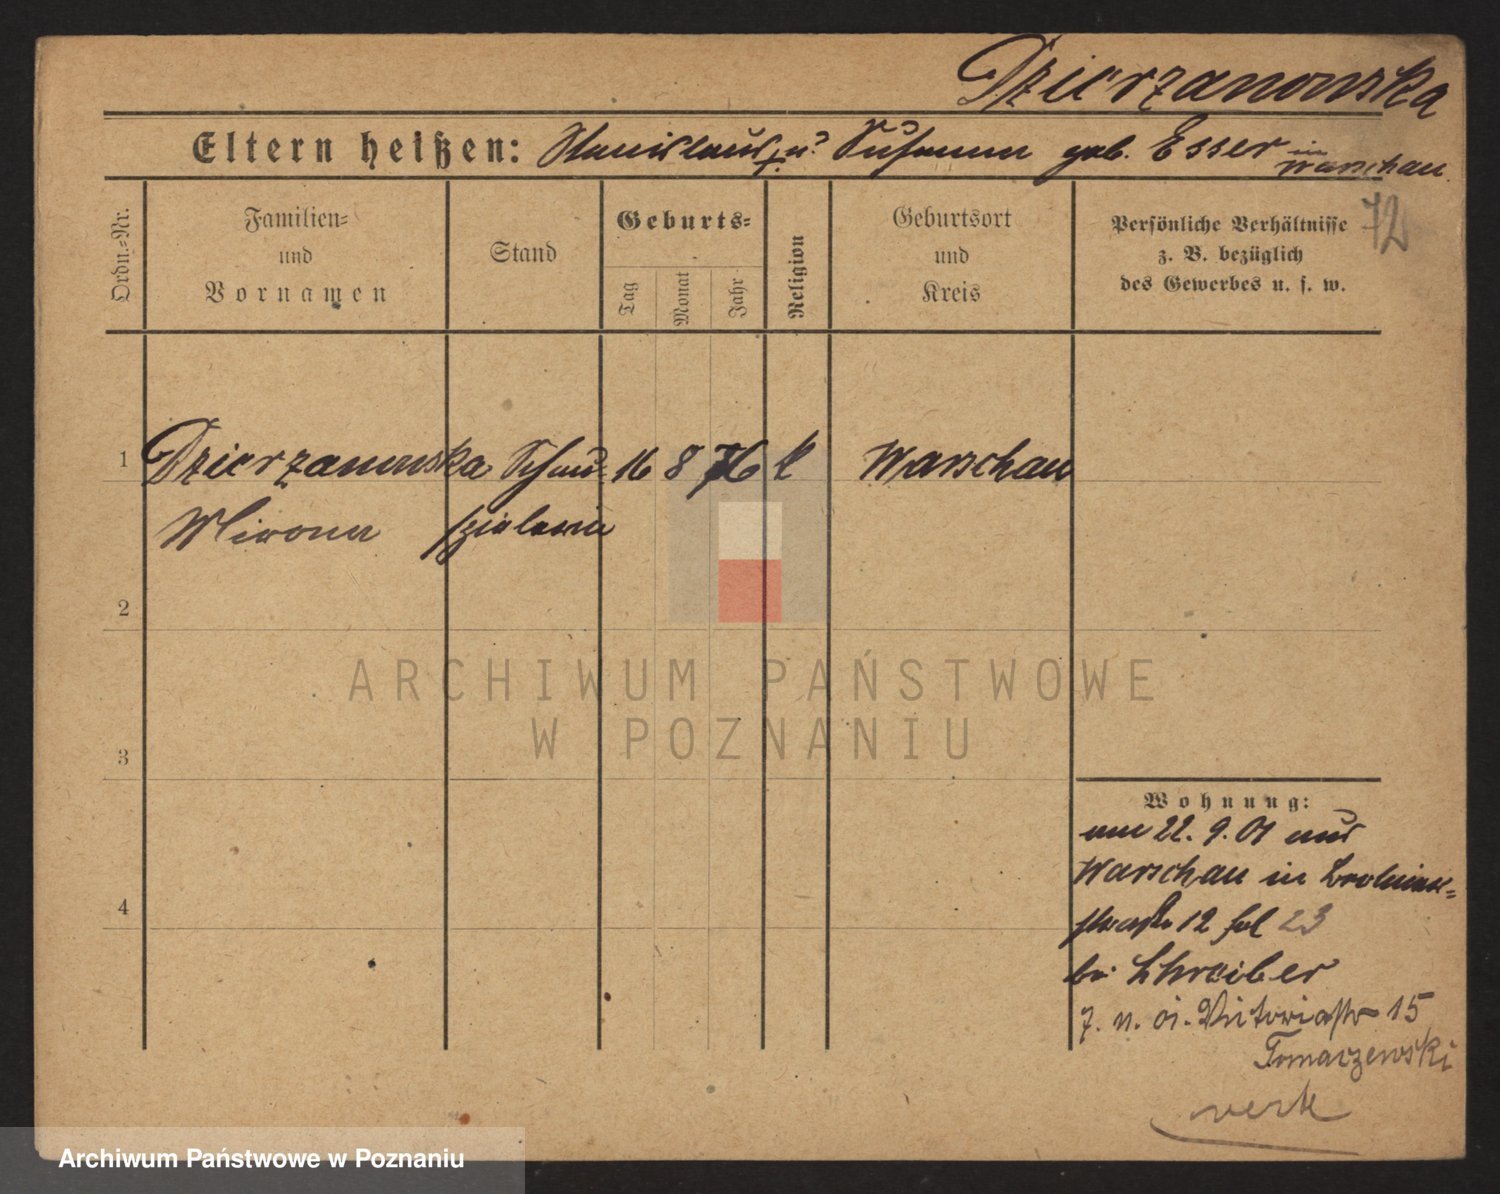 Dzierzanowska
Eltern heißen: Stanislaus † u. Susanna geb. Esser in Warschau.
72
Ordn.-Nr.
Familien-
und
Vornamen
Stand
Geburts-
Tag
Monat
Jahr
Religion
Geburtsort
und
Kreis
Persönliche Verhältnisse
z. B. bezüglich
des Gewerbes u. s. w.
1 Dzierzanowska Schau- 16 8 76 k Warschau
spielerin
2
3
4
Wohnung:
am 22. 9. 01 aus
Warschau in
straße 12 23
bei Schreiber
7. 11. 01. Victoriastr 15
Tomaszewski
ARCHIWUM PAŃSTWOWE
W POZNANIU
Archiwum Państwowe w Poznaniu